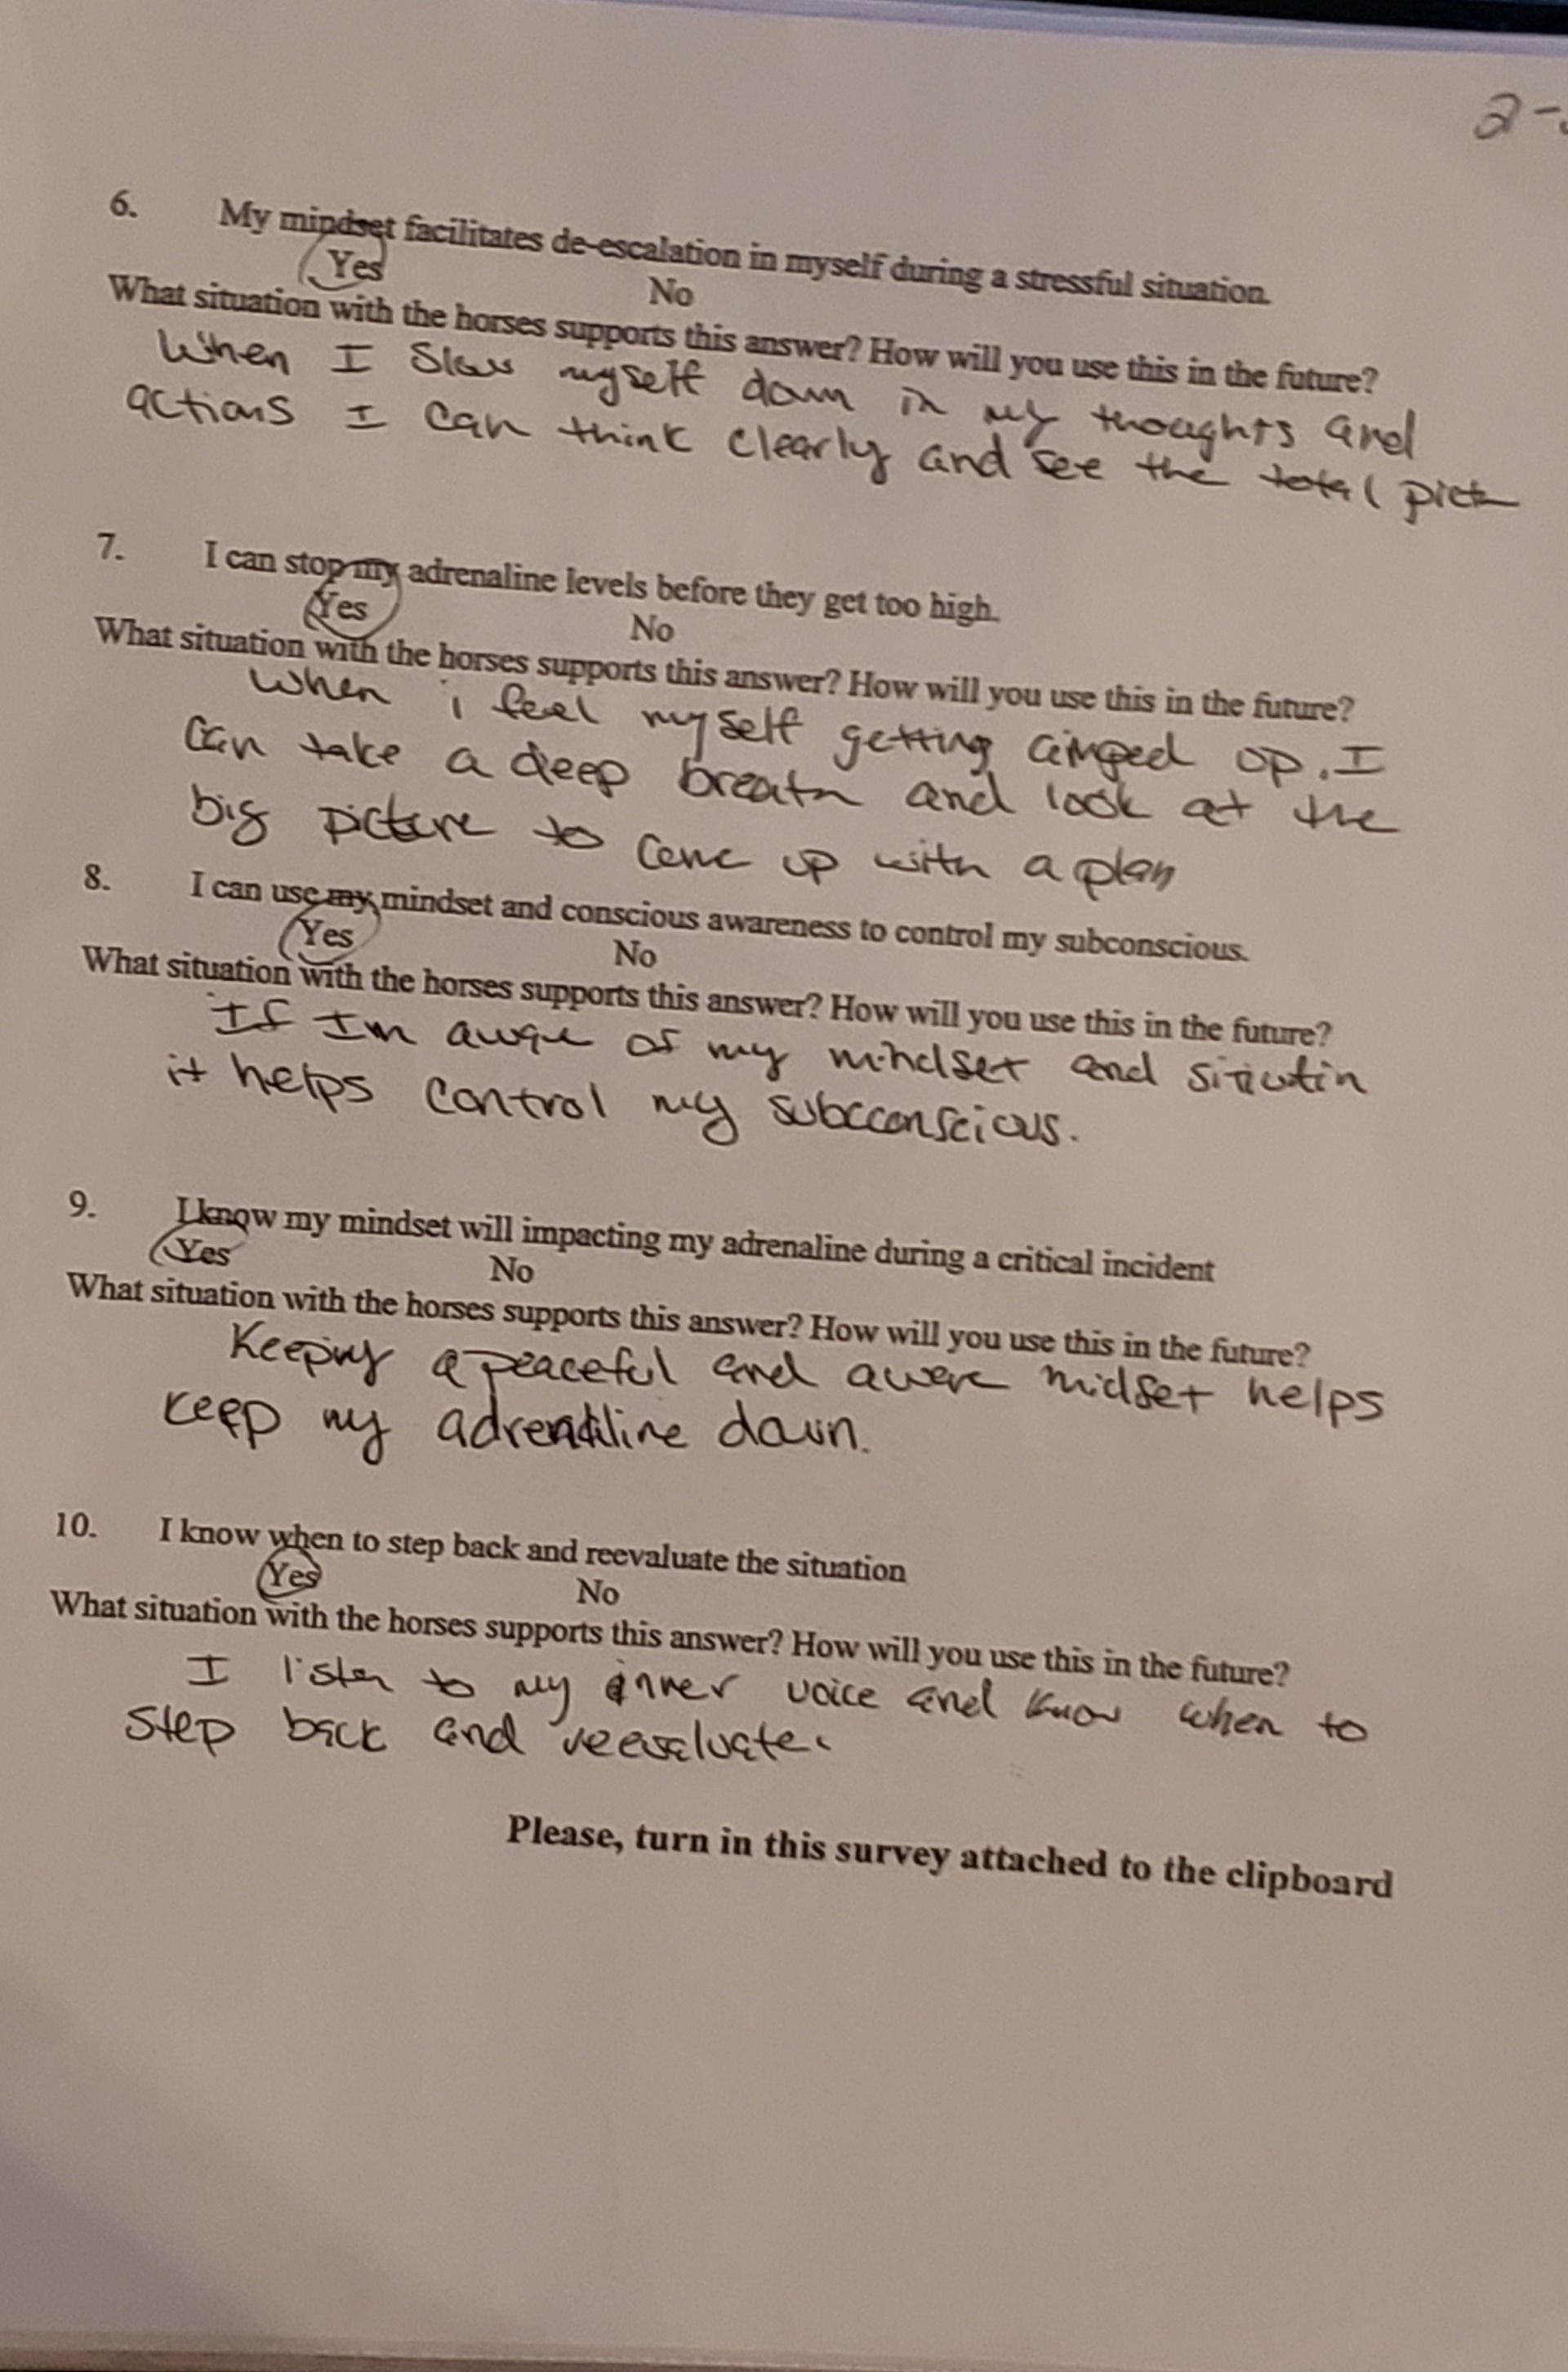 2-
6. My mindset facilitates de-escalation in myself during a stressful situation.
Yes No
What situation with the horses supports this answer? How will you use this in the future?
When I slow myself down in my thoughts and
actions I can think clearly and see the total pict
7. I can stop my adrenaline levels before they get too high.
Yes No
What situation with the horses supports this answer? How will you use this in the future?
When i feel myself getting amped up. I
can take a deep breath and look at the
big picture to come up with a plan
8. I can use my mindset and conscious awareness to control my subconscious.
Yes No
What situation with the horses supports this answer? How will you use this in the future?
If Im aware of my mindset and situatin
it helps control my subcconscious.
9. I know my mindset will impacting my adrenaline during a critical incident
Yes No
What situation with the horses supports this answer? How will you use this in the future?
Keeping a peaceful and aware midset helps
keep my adrenaline down.
10. I know when to step back and reevaluate the situation
Yes No
What situation with the horses supports this answer? How will you use this in the future?
I listen to my inner voice and know when to
step back and reevaluate.
Please, turn in this survey attached to the clipboard